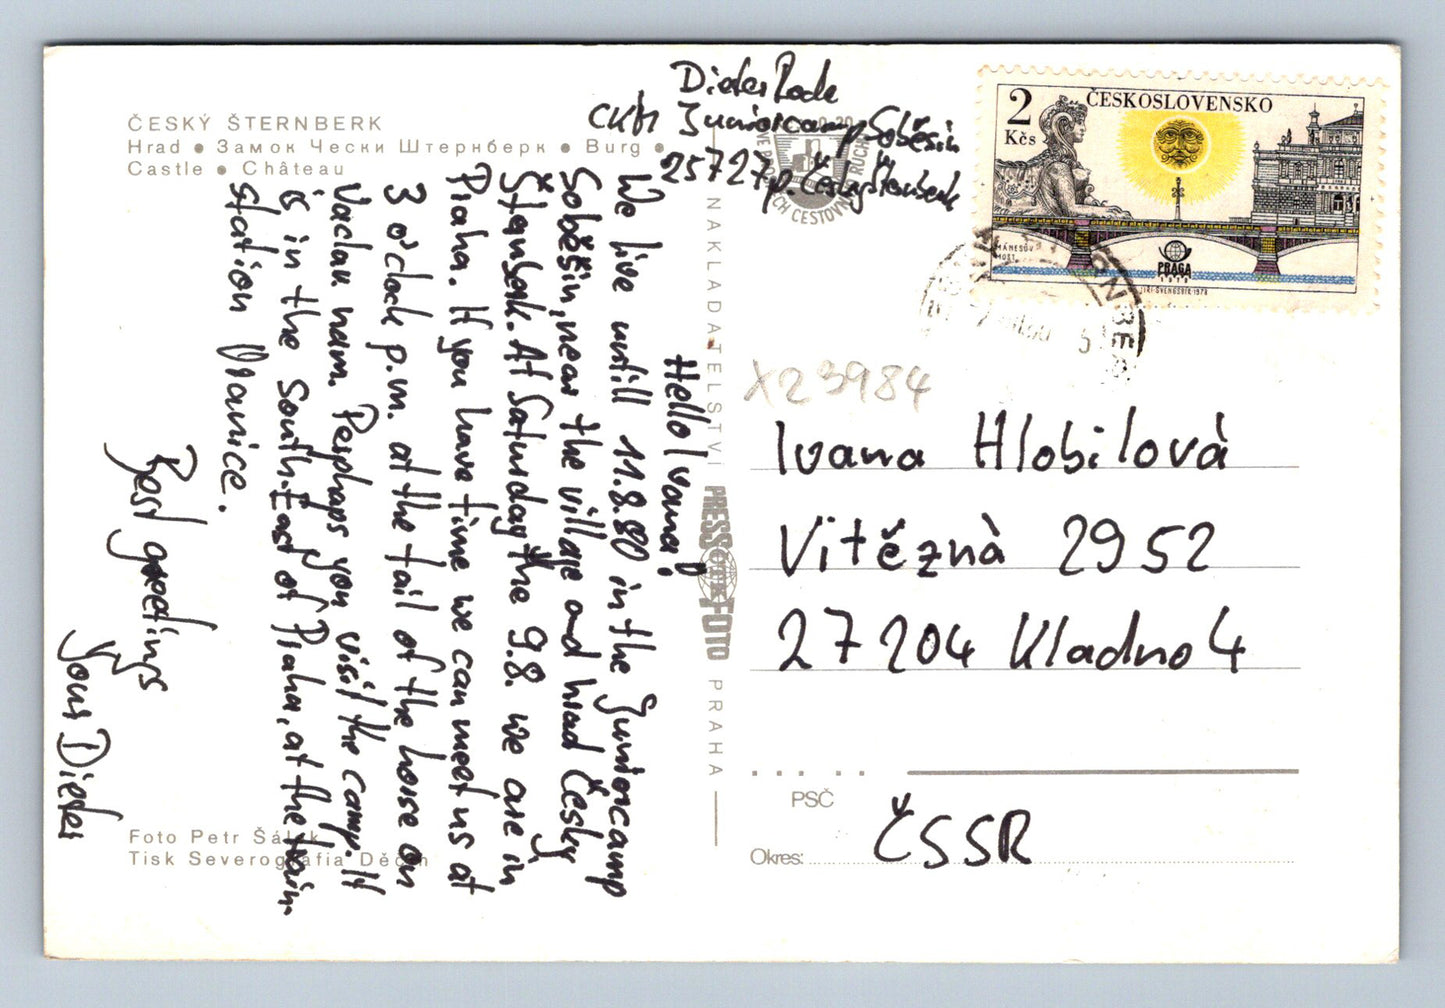 ČESKÝ ŠTERNBERK
Hrad ● Замок Чески Штернберк ● Burg ●
Castle ● Château
Dieter Rode
CKM Juniorcamp Soběsin
25727 p. Český Šternberk
2
Kčs
ČESKOSLOVENSKO
MÁNESŮV
MOST
PRAGA
1978
JIŘÍ ŠVENGSBÍR 1978
Hello Ivana!
We live until 11.8.80 in the Juniorcamp
Soběšin, near the village and hrad Česky
Šternberk. At Saturday the 9.8. we are in
Praha. If you have time we can meet us at
3 o'clock p.m. at the tail of the horse on
Vaclav nam. Perhaps you visit the camp. It
is in the South-East of Praha, at the train
station Vranice.
Best greetings
Your Dieter
Foto Petr Šálek
Tisk Severografia Děčín
NAKLADATELSTVÍ PRESSFOTO PRAHA
ČTK
X23984
Ivana Hlobilovà
Vitězná 2952
27204 Kladno 4
PSČ
Okres:
ČSSR